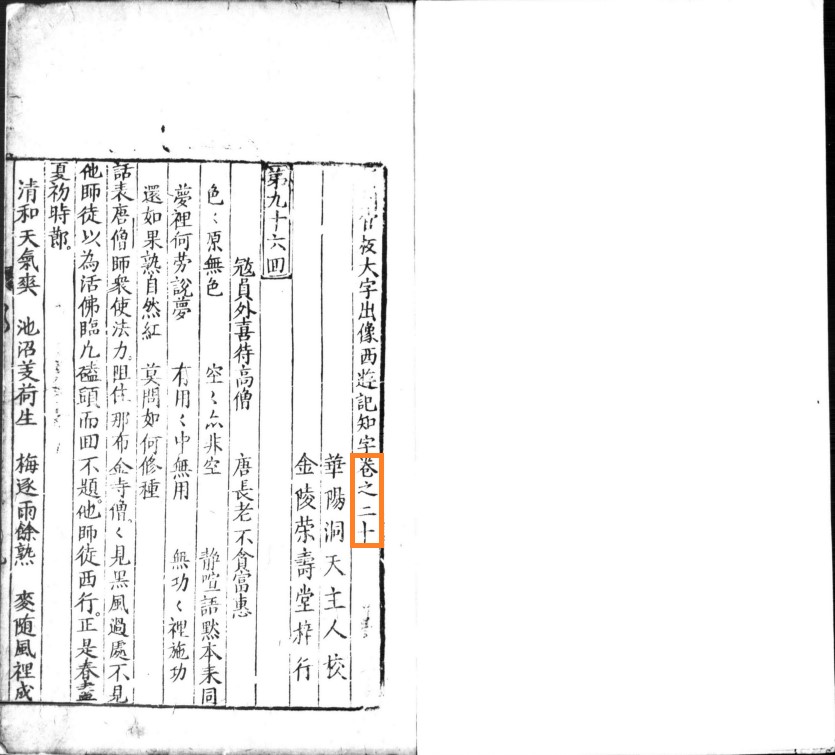 官板大字出像西遊記知字卷之二十
華陽洞天主人校
金陵荣壽堂梓行
第九十六囬
宼員外喜待高僧 唐長老不貪富惠
色〻原無色 空〻亦非空 静喧語默本来同
夢裡何劳說夢 有用〻中無用 無功〻裡施功
還如果熟自然紅 莫問如何修種
話表唐僧師衆使法力。阻住那布金寺僧。〻見黑風過處不見
他師徒以為活佛臨凢磕頭而囬不題。他師徒西行。正是春盡
夏初時節。
清和天氣爽 池沼芰荷生 梅逐雨餘熟 麥随風裡成